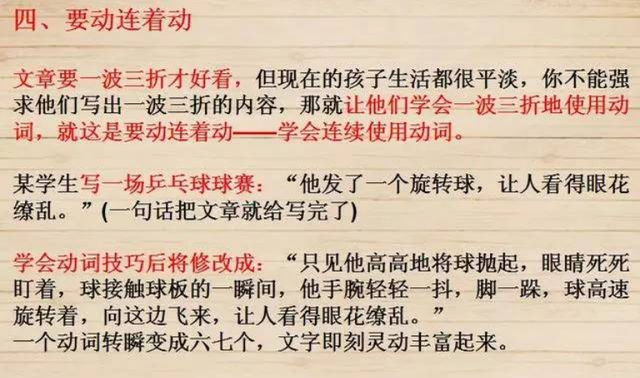 四、要动连着动
文章要一波三折才好看，但现在的孩子生活都很平淡，你不能强
求他们写出一波三折的内容，那就让他们学会一波三折地使用动
词，就这是要动连着动——学会连续使用动词。
某学生写一场乒乓球球赛：“他发了一个旋转球，让人看得眼花
缭乱。”(一句话把文章就给写完了)
学会动词技巧后将修改成：“只见他高高地将球抛起，眼睛死死
盯着，球接触球板的一瞬间，他手腕轻轻一抖，脚一跺，球高速
旋转着，向这边飞来，让人看得眼花缭乱。”
一个动词转瞬变成六七个，文字即刻灵动丰富起来。